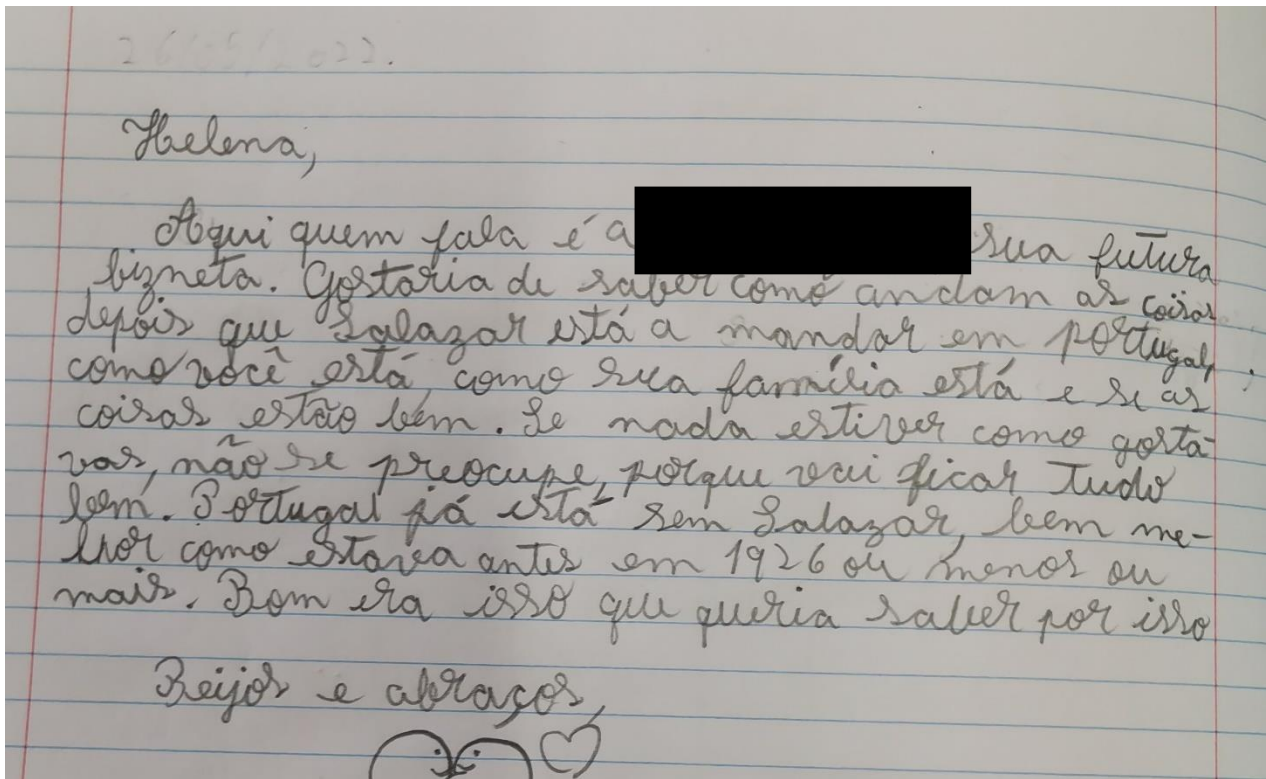 26/05/2022.
Helena,
Aqui quem fala é a sua futura
bizneta. Gostaria de saber como andam as coisas
depois que Salazar está a mandar em portugal,
como você está, como sua família está e se as
coisas estão bem. Se nada estiver como gosta-
vas, não se preocupe, porque vai ficar tudo
bem. Portugal já está sem Salazar, bem me-
lhor como estava antes em 1926 ou menos ou
mais. Bom era isso que queria saber por isso
Beijos e abraços,